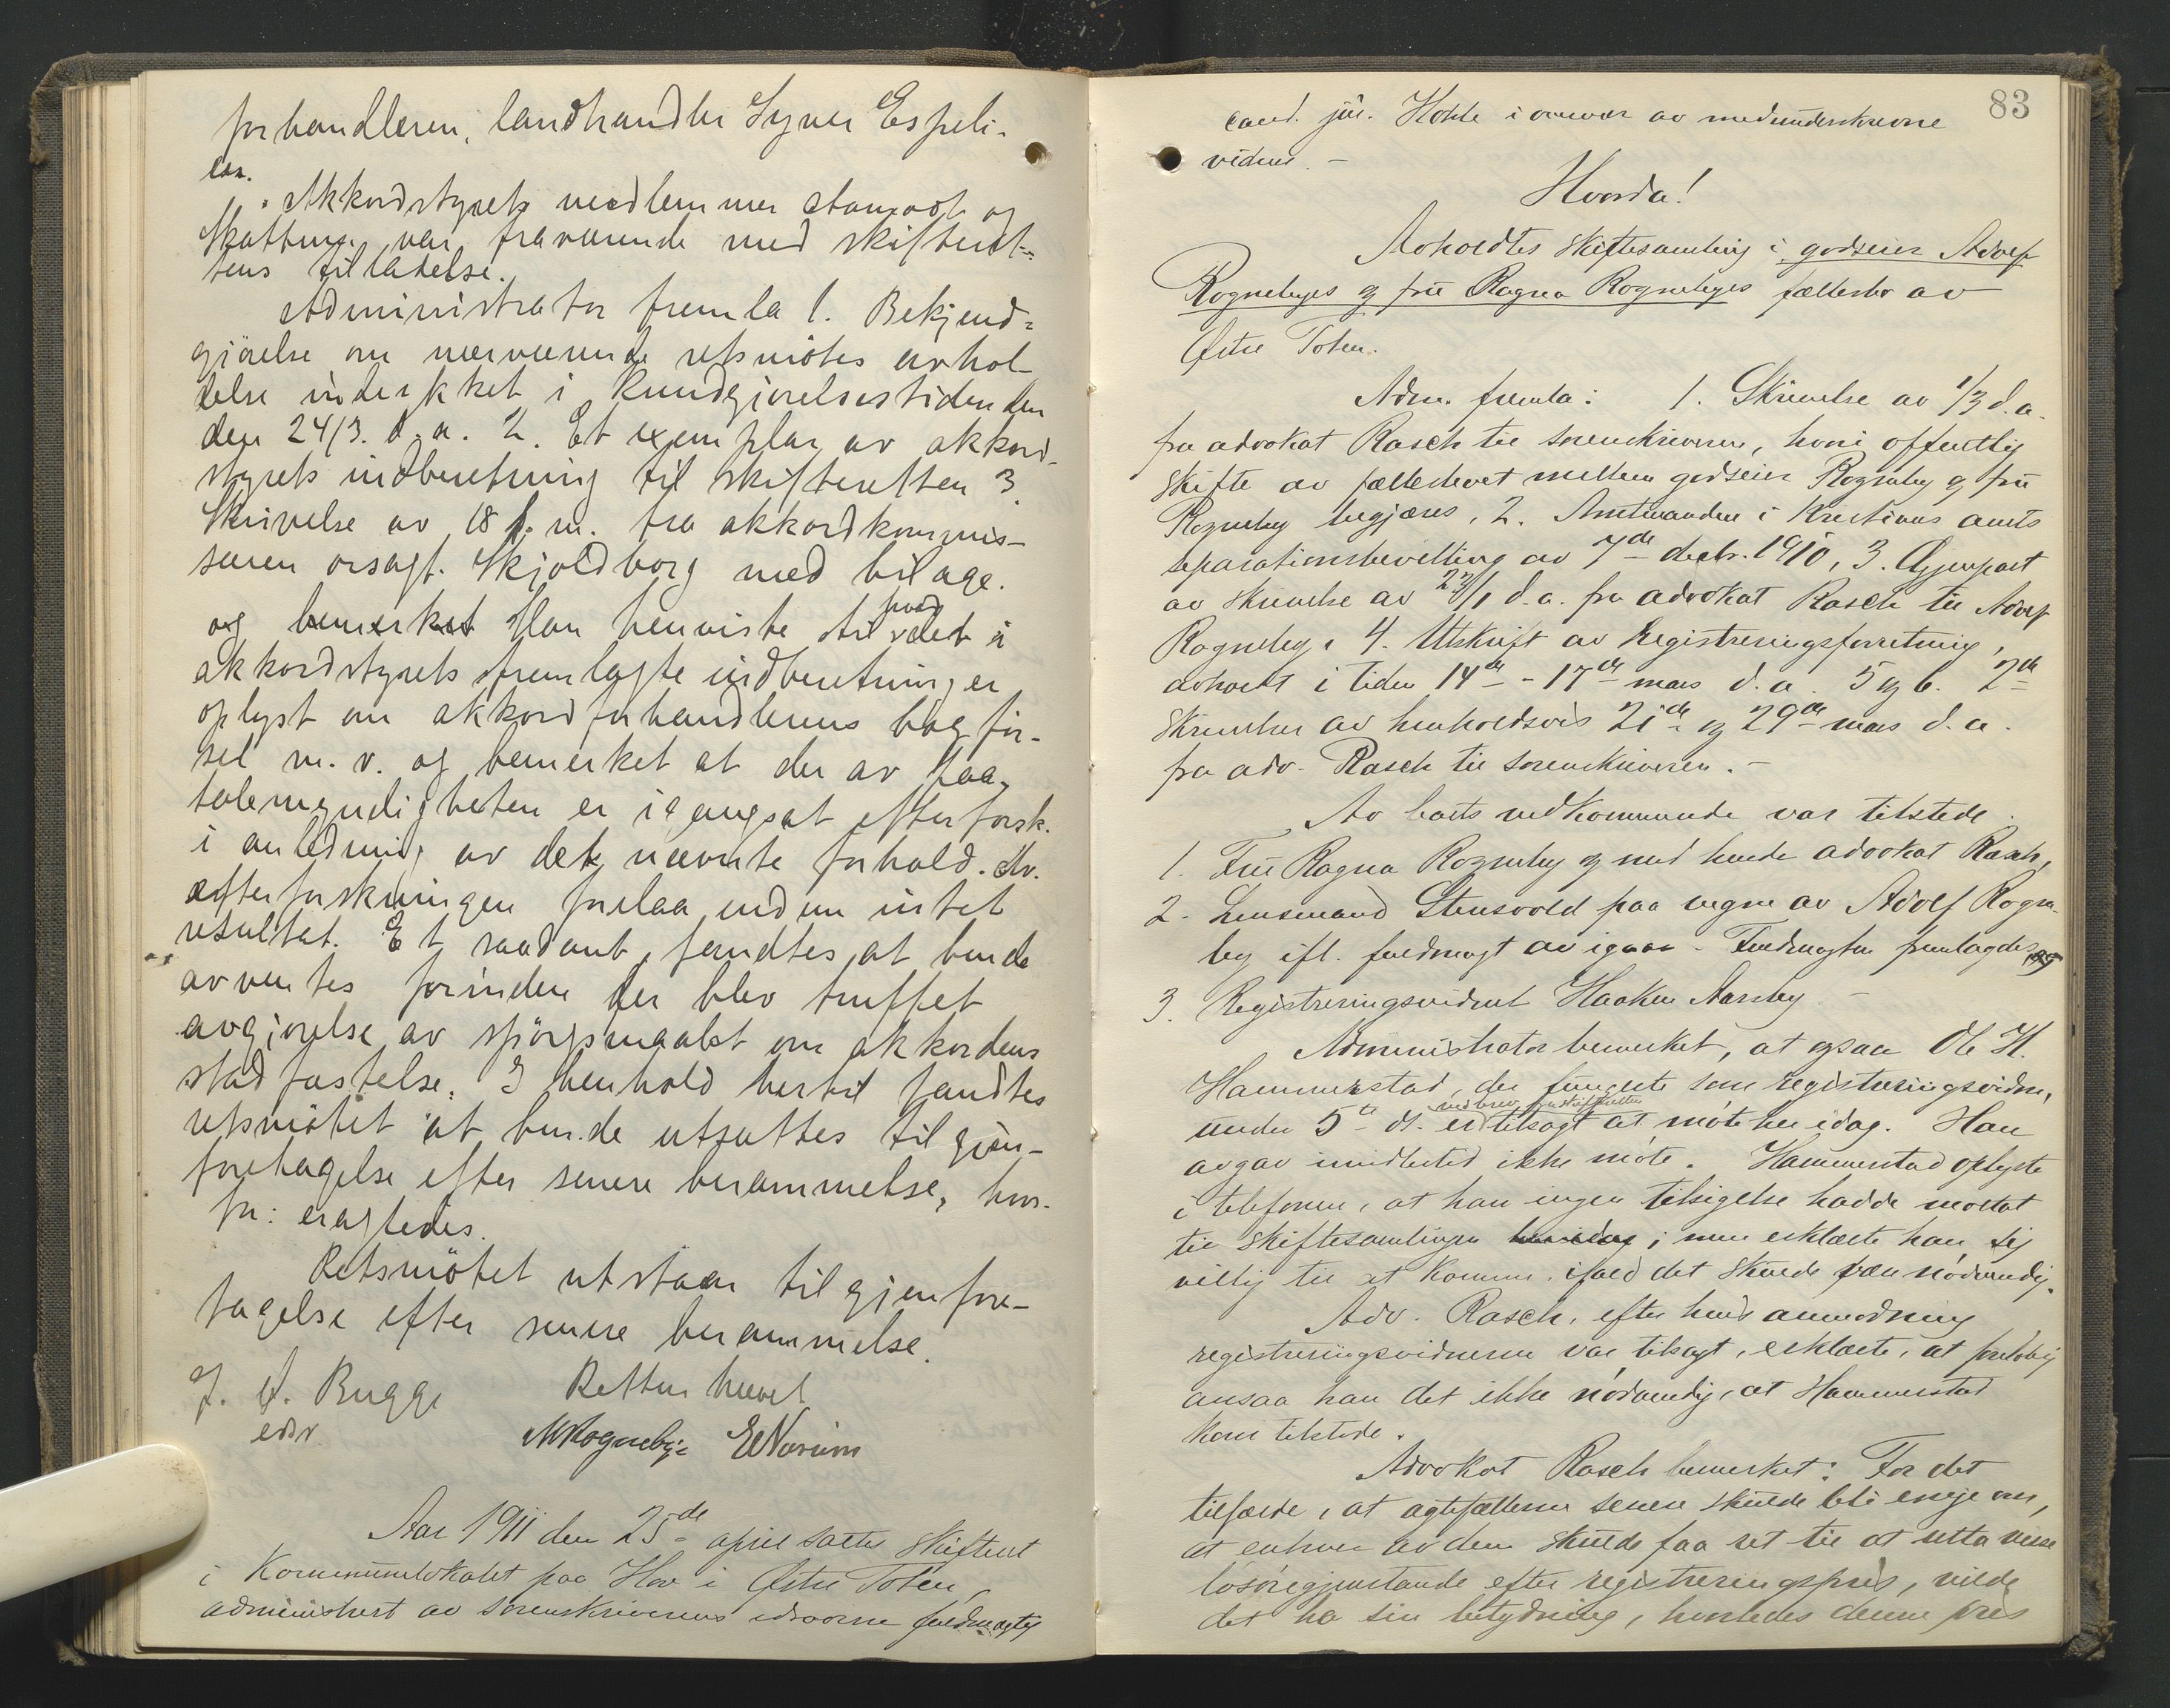 forhandleren, landhandler Syver Espeli-
en.
Akkordstyrets medlemmer Aamodt og
Skattum var fraværende med skifteret-
tens tilladelse.
Administrator fremla 1. Bekjend-
gjørelse om nærværende retsmøtes avhol-
delse indrykket i Kundgjørelsestidenden
den 24/3. d. a. 2. Et exemplar av akkord-
styrets indberetning til skifteretten 3.
Skrivelse av 18 d. m. fra akkordkommis-
seren orsagf. Skjoldborg med bilage.
og bemerket Han henviste til hvad det i
akkordstyrets fremlagte indberetning er
oplyst om akkordforhandlerens bogfør-
sel m. v. og bemerket at der av paa-
talemyndigheten er igangsat efterforsk.
i anledning av det nævnte forhold. Av
efterforskningen forelaa endnu intet
resultat. Et saadant fandtes at burde
avventes forinden der blev truffet
avgjørelse av spørgsmaalet om akkordens
stadfæstelse. I henhold hertil fandtes
retsmøtet at burde utsættes til gjen-
foretagelse efter senere berammelse, hvor-
for: eragtedes.
Retsmøtet utstaar til gjenfore-
tagelse efter senere berammelse.
Retten hævet
J. A. Bugge
edsv
M Rognebye E Narum
Aar 1911 den 25de april sattes skifteret
i Kommunelokalet paa Hov i Østre Toten
administrert av sorenskriverens edsvorne fuldmægtig
83
cand. jur. Holste i overvær av medunderskrevne
vidner. -
Hvorda!
Avholdtes skiftesamling i godseier Adolf
Rognebyes og frü Ragna Rognebyes fællesbo av
Østre Toten.
Adm. fremla: 1. Skrivelse av 1/3 d. a.
fra advokat Rasch til sorenskriveren, hvori offentlig
skifte av fællesboet mellem godseier Rogneby og frü
Rogneby begjæres, 2. Amtmanden i Kristians amts
separationsbevilling av 7de decbr. 1910, 3. Gjenpart
av skrivelse av 23/1 d. a. fra advokat Rasch til Adolf
Rogneby, 4. Utskrift av Registreringsforretning,
avholdt i tiden 14de - 17de mars d. a. 5 og 6. 2de
skrivelser av henholdsvis 21de og 29de mars d. a.
fra adv. Rasch til sorenskriveren. -
Av boets vedkommende var tilstede
1. Frü Ragna Rogneby og med hende advokat Rasch,
2. Lensmand Stensvold paa vegne av Adolf Rogne-
by ifl. fuldmagt av igaar - Fuldmagten fremlagdes, og
3. Registreringsvidnet Haaken Aarsby -
Administrator bemerket, at ogsaa Ole H.
Hammerstad, der fungerte som registreringsvidne,
under 5te ds. er ved brev fra skifteretten tilsagt at møte her idag. Han
avgav imidlertid ikke møte. Hammerstad oplyste
i telefonen, at han ingen tilsigelse hadde mottat
til skiftesamlingen her idag; men erklærte han sig
villig til at komme, ifald det skulde være nødvendig.
Adv. Rasch, efter hvis anmodning
registreringsvidnerne var tilsagt, erklærte, at foreløbig
ansaa han det ikke nødvendig, at Hammerstad
kom tilstede.
Advokat Rasch bemerket: For det
tilfælde, at ægtefællerne senere skulde bli enige om,
at enhver av dem skulde faa ret til at utta visse
løsøregjenstande efter registreringspris, vilde
det ha sin betydning, hvorledes denne pris